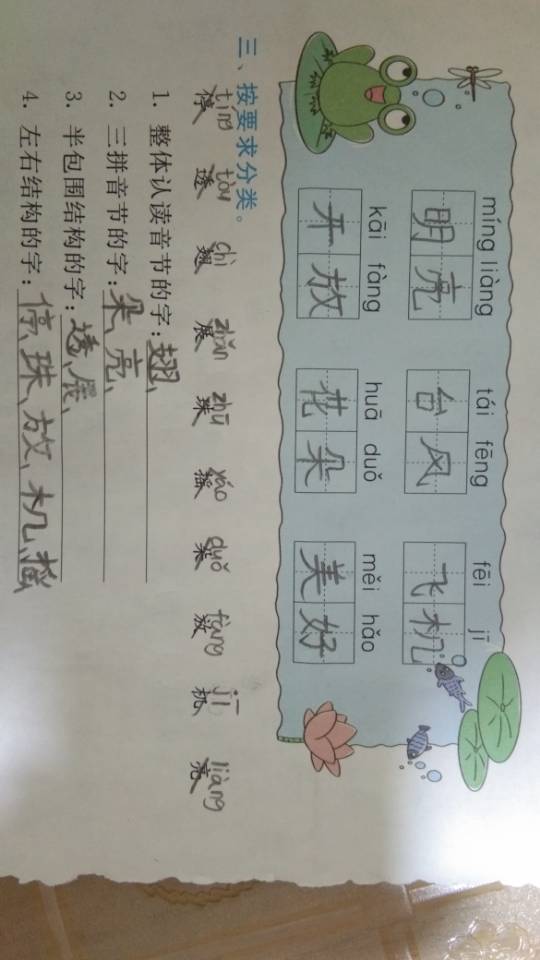 míng liàng tái fēng fēi jī
明亮 台风 飞机
kāi fàng huā duǒ měi hǎo
开放 花朵 美好
三、按要求分类。
tíng tòu chì zhǎn zhū yáo duǒ fàng jī liàng
停 透 翅 展 珠 摇 朵 放 机 亮
1. 整体认读音节的字：翅、
2. 三拼音节的字：朵、亮、
3. 半包围结构的字：透、展、
4. 左右结构的字：停、珠、放、机、摇